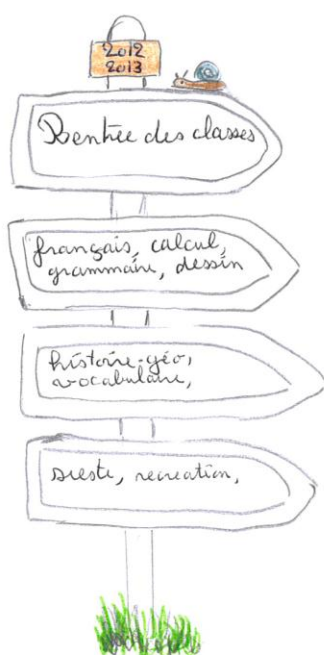 2012
2013
Rentrée des classes
français, calcul,
grammaire, dessin
histoire-géo,
vocabulaire,
sieste, recreation,